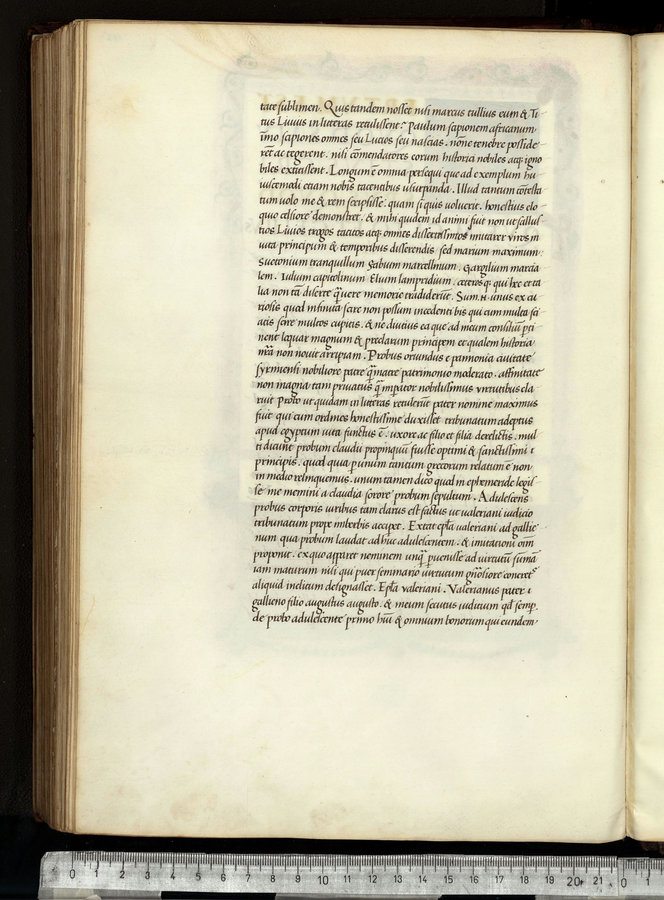 tate sublimen. Quis tandem nosset nisi marcus tullius eum & Ti
tus Livius in litteras retulissent? Paulum scipionem africanum
īmo scipiones omnes seu Lucios seu nasicas. nōne tenebre posside
rēt ac tegerent. nisi cōmendatores eorum historici nobiles atq; igno
biles extitissent. Longum ē omnia persequi que ad exemplum hu
iuscemodi etiam nobis tacentibus usurpanda. Illud tantum cōtesta
tum uolo me & rem scripsisse. quam si quis uoluerit. honestius elo
quio celsiore demonstret. & mihi quidem id animi fuit non ut sallus
tios Livios trogos tacitos atq; omnes disertissimos imitarer viros in
uita principum & temporibus disserendis. sed marium maximum
Suetonium tranquillum fabium marcellinum. Gargilium marcia
lem. Iulium capitolinum Elium lampridium. ceterosq; qui hec et ta
lia non tā diserte q̄ uere memorie tradiderūt. Sum .n. unus ex cu
riosis quod infinitū scire non possum incedentibus qui cum multa sci
atis scire multos cupitis. & ne diutius ea que ad meum consiliū pti
nent loquar magnum & preclarum principem et qualem historia
nrā non nouit arripiam. Probus oriundus e pannonia ciuitate
syrmiensi nobiliore patre q̄ matre patrimonio moderato. affinitate
non magna tam priuatus q̄ īmpator nobilissimus virtutibus cla
ruit. Probo ut quidam in litteras retulerūt pater nomine maximus
fuit qui cum ordines honestissime duxisset tribunatum adeptus
apud egyptum uita functus ē. uxore ac filio et filia derelictis. mul
ti dicunt probum claudii propinquū fuisse optimi & sanctissimi
principis. quod quia p unum tantum grecorum relatum ē non
in medio relinquemus. unum tamen dico quod in ephemeride legis
se me memini a claudia sorore probum sepultum. Adulescens
probus corporis uiribus tam clarus est factus ut valeriani iudicio
tribunatum prope imberbis acciperet. Extat epla valeriani ad gallie
num qua probum laudat adhuc adulescentem. & imitationi oīm
proponit. ex quo apparet neminem unq̄ puenisse ad virtutū sūmā
iam maturum nisi qui puer seminario virtutum gnosiore concret⁹
aliquid inclitum designasset. Epla valeriani. Valerianus pater
gallieno filio augustus augusto. & meum secutus iuditium qd semp
de probo adulescente primo hui & omnium bonorum qui eundem